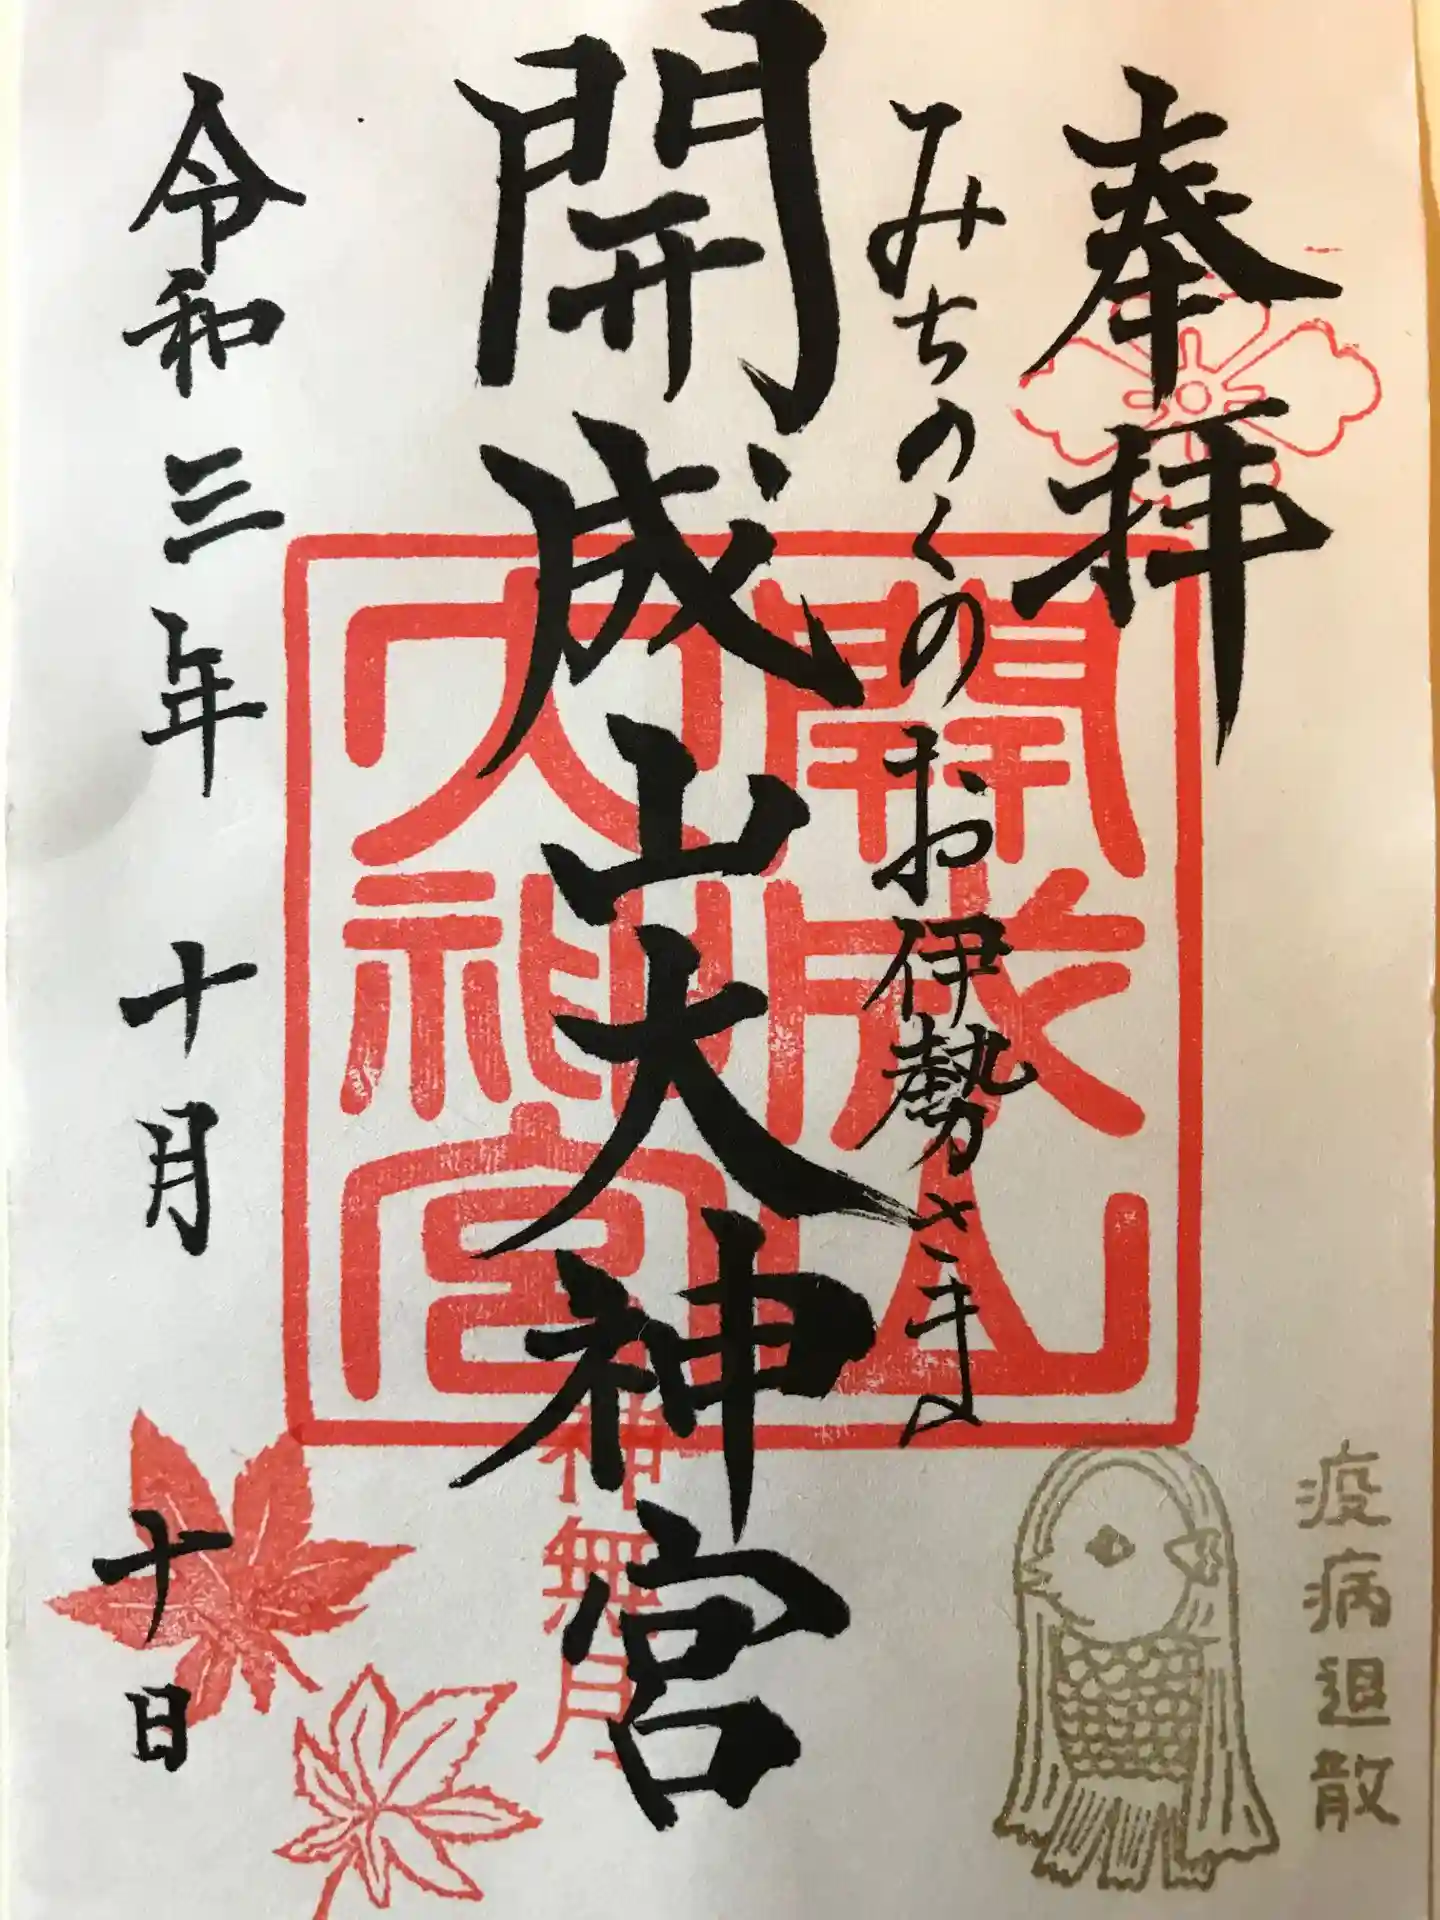 奉拝
みちのくのお伊勢さま
開成山大神宮
令和三年十月十日
開成山
大神宮
神無月
疫病退散